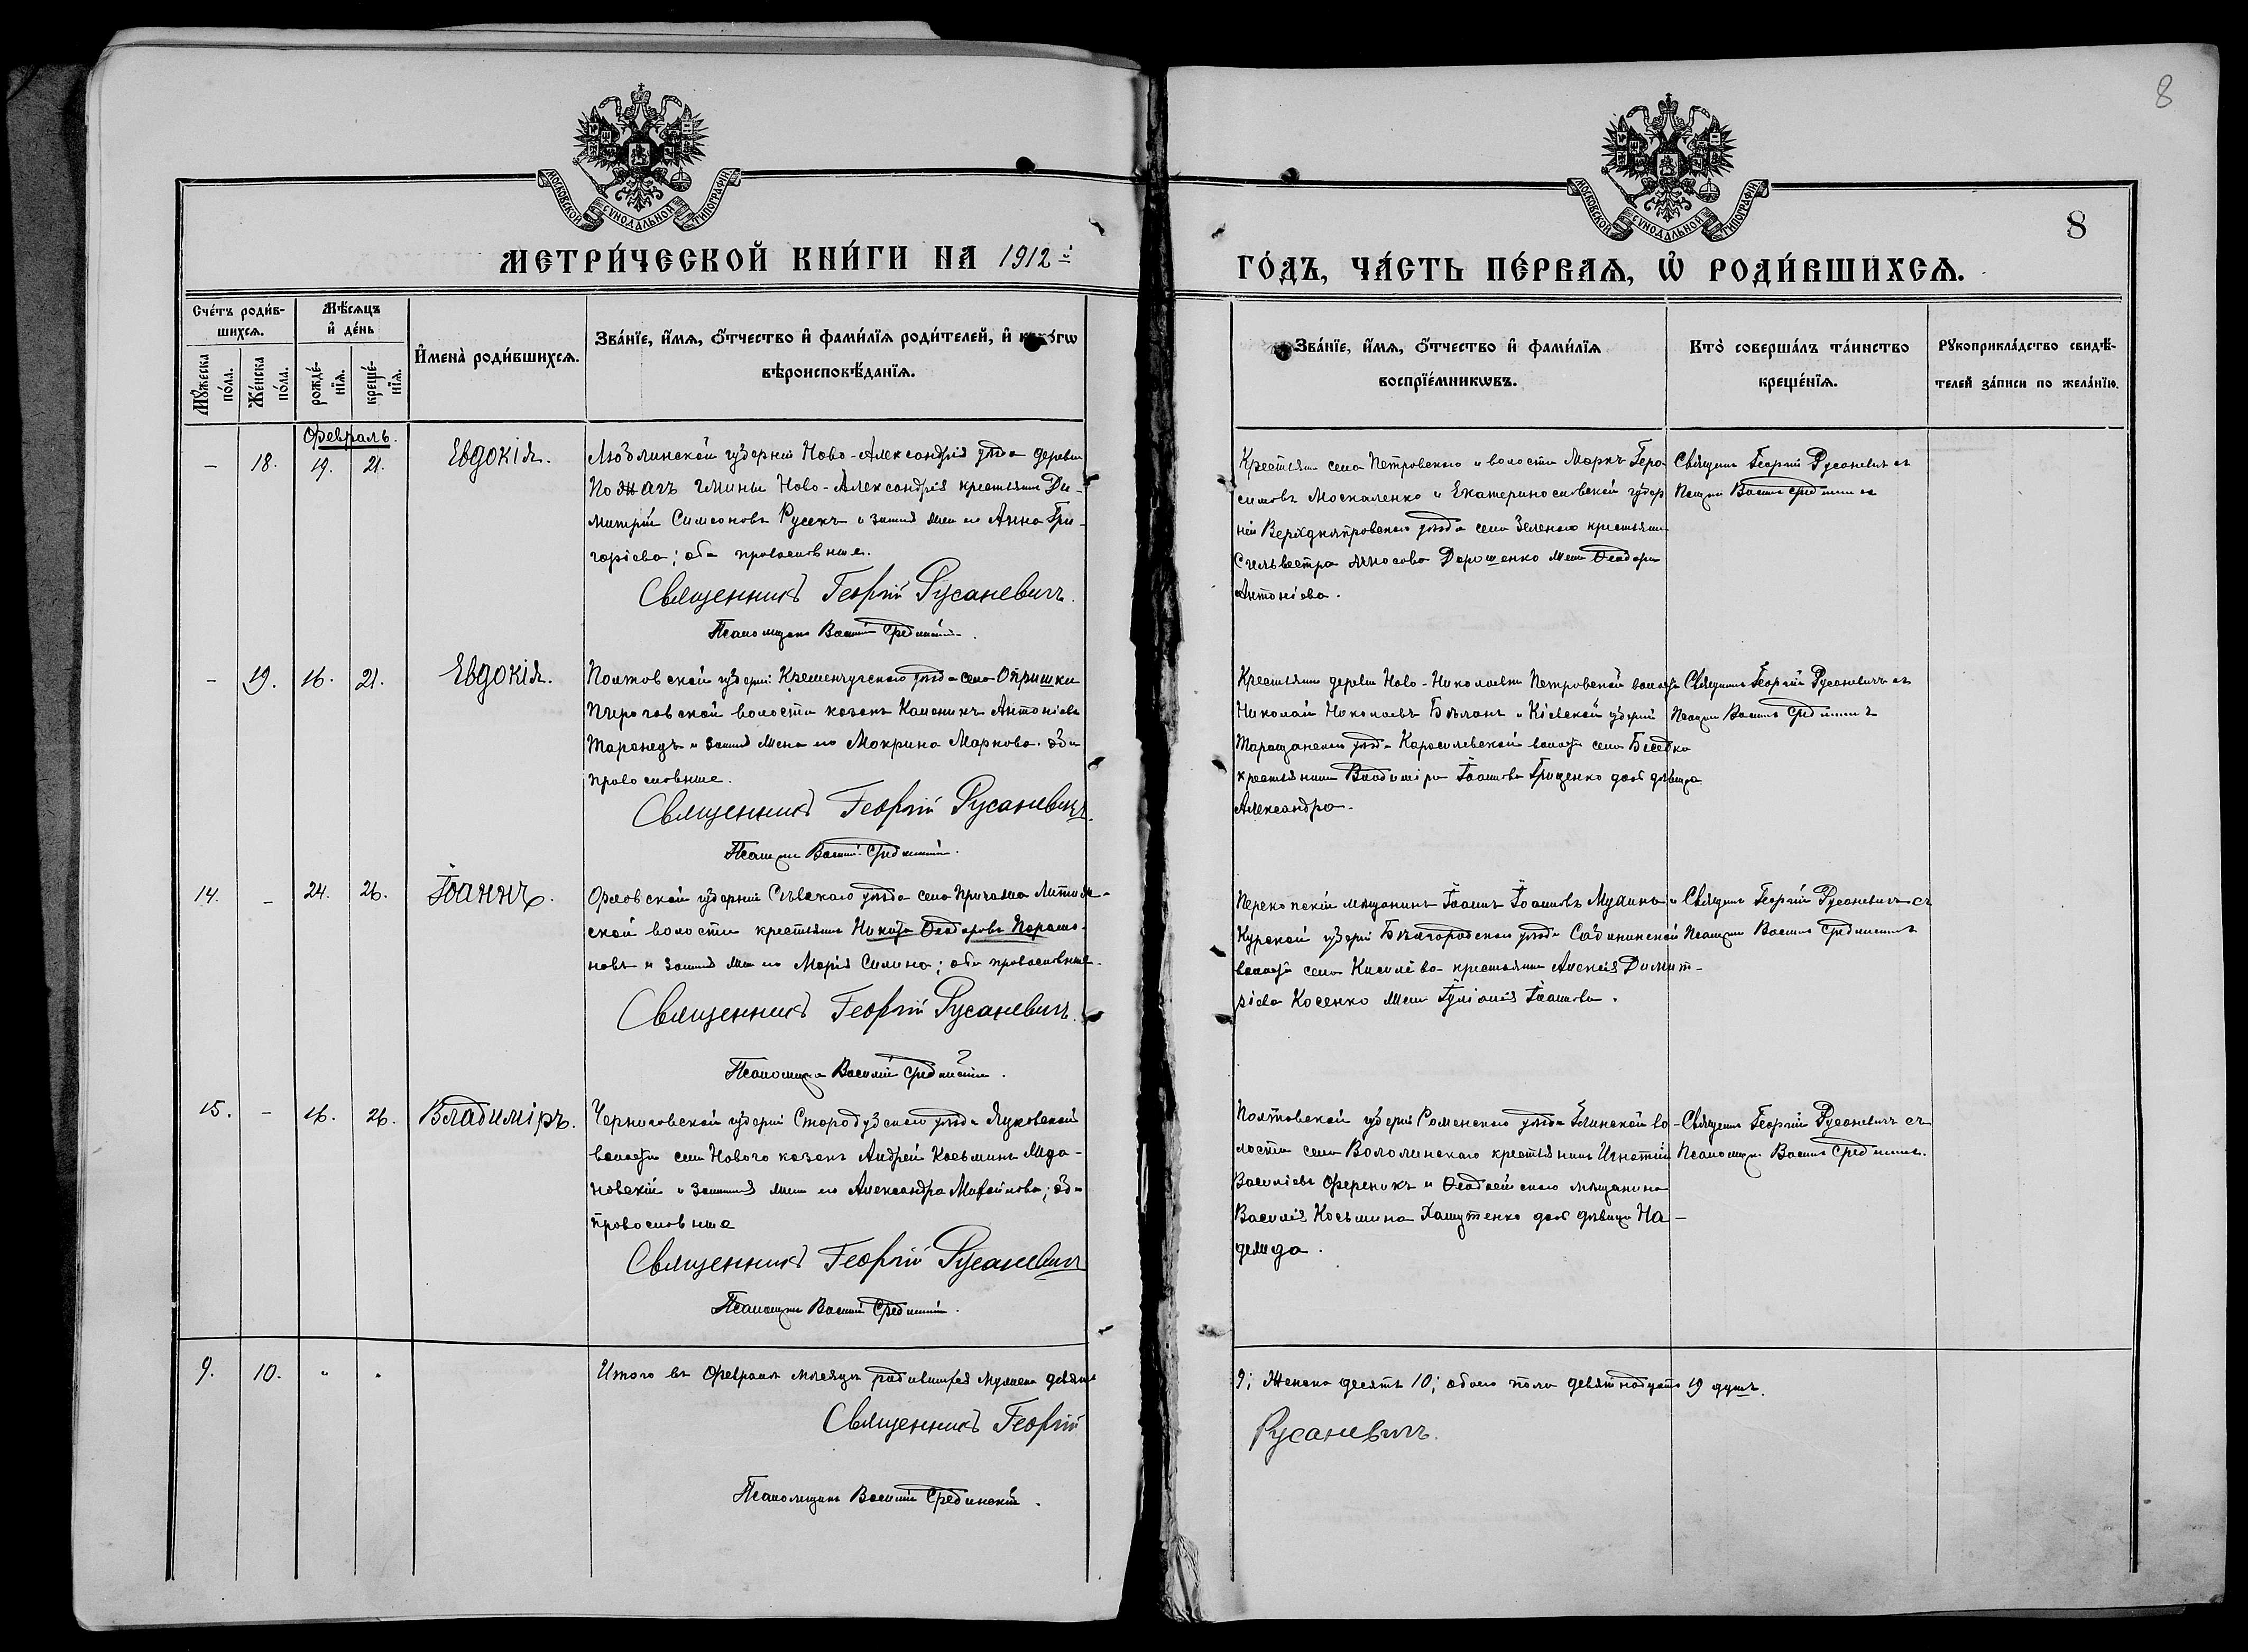 8
МОСКОВСКОЙ СѴНОДАЛЬНОЙ ТИПОГРАФІИ
МОСКОВСКОЙ СѴНОДАЛЬНОЙ ТИПОГРАФІИ
8
МЕТРИ́ЧЕСКОЙ КНИ́ГИ НА 1912й
ГО́ДЪ, ЧА́СТЬ ПЕ́РВАѦ, Ѡ҆ РОДИ́ВШИХСѦ.
Сче́тъ роди́в-
шихсѧ.
Мꙋ́жеска по́ла.
Же́нска по́ла.
Мѣ́сѧцъ
и҆ де́нь
рожде́нїѧ.
креще́нїѧ.
И҆мена̀ роди́вшихсѧ.
Зва́нїе, и҆́мѧ, ѻ҆́тчество и҆ фами́лїѧ роди́телей, и҆
вѣроисповѣ́данїѧ.
Зва́нїе, и҆́мѧ, ѻ҆́тчество и҆ фами́лїѧ
воспрїе́мникѡвъ.
Кто̀ соверша́лъ та́инство
креще́нїѧ.
Рꙋкоприкла́дство свидѣ́-
телей за́писи по жела́нїю.
Февраль.
– 18. 19. 21. Евдокія.
Люблинской губерніи Ново-Александрія уѣзда деревни
Пожагъ гмины Ново-Александрія крестьянинъ Ди-
митрій Симеоновъ Русекъ и законная жена его Анна Гри-
горіева; оба православные.
Священникъ Георгій Русаневичъ.
Псаломщикъ Василій Срединскій.
Крестьянинъ села Петровскаго и волости Маркъ Гера-
симовъ Москаленко и Екатеринославской губер
ніи Верхднѣпровскаго уѣзда села Зеленаго крестьянина
Сильвестра Дорошенко жена Ѳеодора
Антоніева.
Священникъ Георгій Русаневичъ съ
Псаломщ Василіемъ Срединскимъ
– 19. 16. 21. Евдокія.
Полтовской губерніи Кременчугскаго уѣзда села Опришки
Пироговской волости козакъ Калиникъ Антоніевъ
Таранецъ и законная жена его Макрина Маркова. оба
православные.
Священникъ Георгій Русаневичъ.
Псаломщикъ Василій Срединскій.
Крестьянинъ деревни Ново-Николаевки Петровской волости
Николай Николаевъ Бѣланъ и Кіевской губерніи
Таращанскаго уѣзда волости села Беседка
крестьянина Владиміра Іоаннова Гриценко дочь дѣвица
Александра.
Священникъ Георгій Русаневичъ съ
Псаломщ Василіемъ Срединскимъ
14. – 24. 26. Іоаннъ.
Орловской губерніи Сѣвскаго уѣзда села
ской волости крестьянинъ Никита Ѳеодоровъ Парамо-
новъ и законная жена его Марія Силина; оба православные.
Священникъ Георгій Русаневичъ.
Псаломщикъ Василій Срединскій.
Перекопскій мѣщанинъ Іоаннъ Іоанновъ и
Курской губерніи Бѣлгородскаго уѣзда Сабининской
волости села Киселёва крестьянина Алексія Димит-
ріева Косенко жена Іуліанія Іоаннова.
Священникъ Георгій Русаневичъ съ
Псаломщ Василіемъ Срединскимъ
15. – 16. 26. Владиміръ.
Черниговской губерніи Стародубскаго уѣзда
волости села Нового козакъ Андрей Косьминъ Мда-
новскій и законная жена его Александра Михайлова; оба
православные
Священникъ Георгій Русаневичъ
Псаломщикъ Василій Срединскій.
Полтовской губерніи Роменскаго уѣзда Глинской во-
лости села крестьянинъ Игнатій
Василіевъ Ференикъ и Ѳеодосійскаго мѣщанина
Василія Косьмина дочь дѣвица На-
дежда.
Священникъ Георгій Русаневичъ съ
Псаломщ Василіемъ Срединскимъ.
9. 10. " "
Итого въ Февралѣ мѣсяцѣ родившихся мужска девять
9; женска десять 10; обоего пола девятнадцать 19 душъ.
Священникъ Георгій
Русаневичъ.
Псаломщикъ Василій Срединскій.